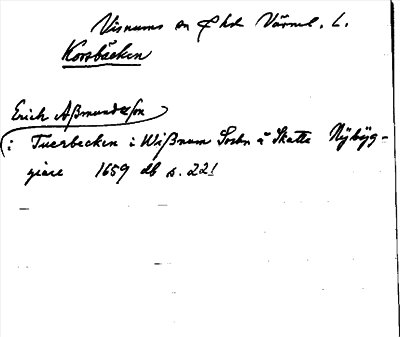 Visnums sn Ö hd Värml. l.
Korsbäcken
Erich Aßmundsson
: Tuerbecken i Wißnum Sochn å Skatte Nÿbÿg-
giare 1659 db s. 221